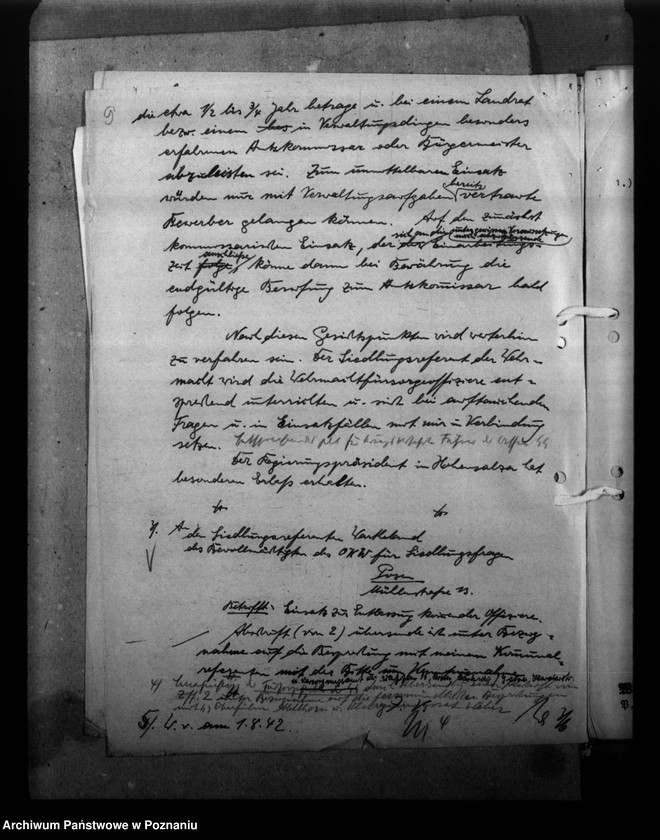 die etwa 1/2 bis 3/4 Jahr betrage u. bei einem Landrat
bezw. einem in Verwaltungsdingen besonders
erfahrenen Amtskommissar oder Bürgermeister
abzuleisten sei. Zum unmittelbaren Einsatz
würden nur mit Verwaltungsaufgaben bereits vertraute
Bewerber gelangen können. Auf den zunächst
kommissarischen Einsatz, der sich an die
zeit anschließe, könne dann bei Bewährung die
endgültige Berufung zum Amtskommissar bald
folgen.
Nach diesen Gesichtspunkten wird weiterhin
zu verfahren sein. Der Siedlungsreferent der Wehr-
macht wird die Wehrmachtfürsorgeoffiziere ent-
sprechend unterrichten u. sich bei auftauchenden
Fragen u. in Einsatzfällen mit mir in Verbindung
setzen.
Der Regierungspräsident in Hohensalza hat
besonderen Erlaß erhalten.
3/. An
den Siedlungsreferenten Wartheland
des Bevollmächtigten des OKW für Siedlungsfragen
Posen
Müllerstraße 13.
Betrifft: Einsatz zur Entlassung kommender Offiziere.
Abschrift (von 2) übersende ich unter Bezug-
nahme auf die Besprechung mit meinem Kommunal-
referenten mit der Bitte um Kenntnisnahme
4/
5/. W. v. am 1.8.42.
Archiwum Państwowe w Poznaniu